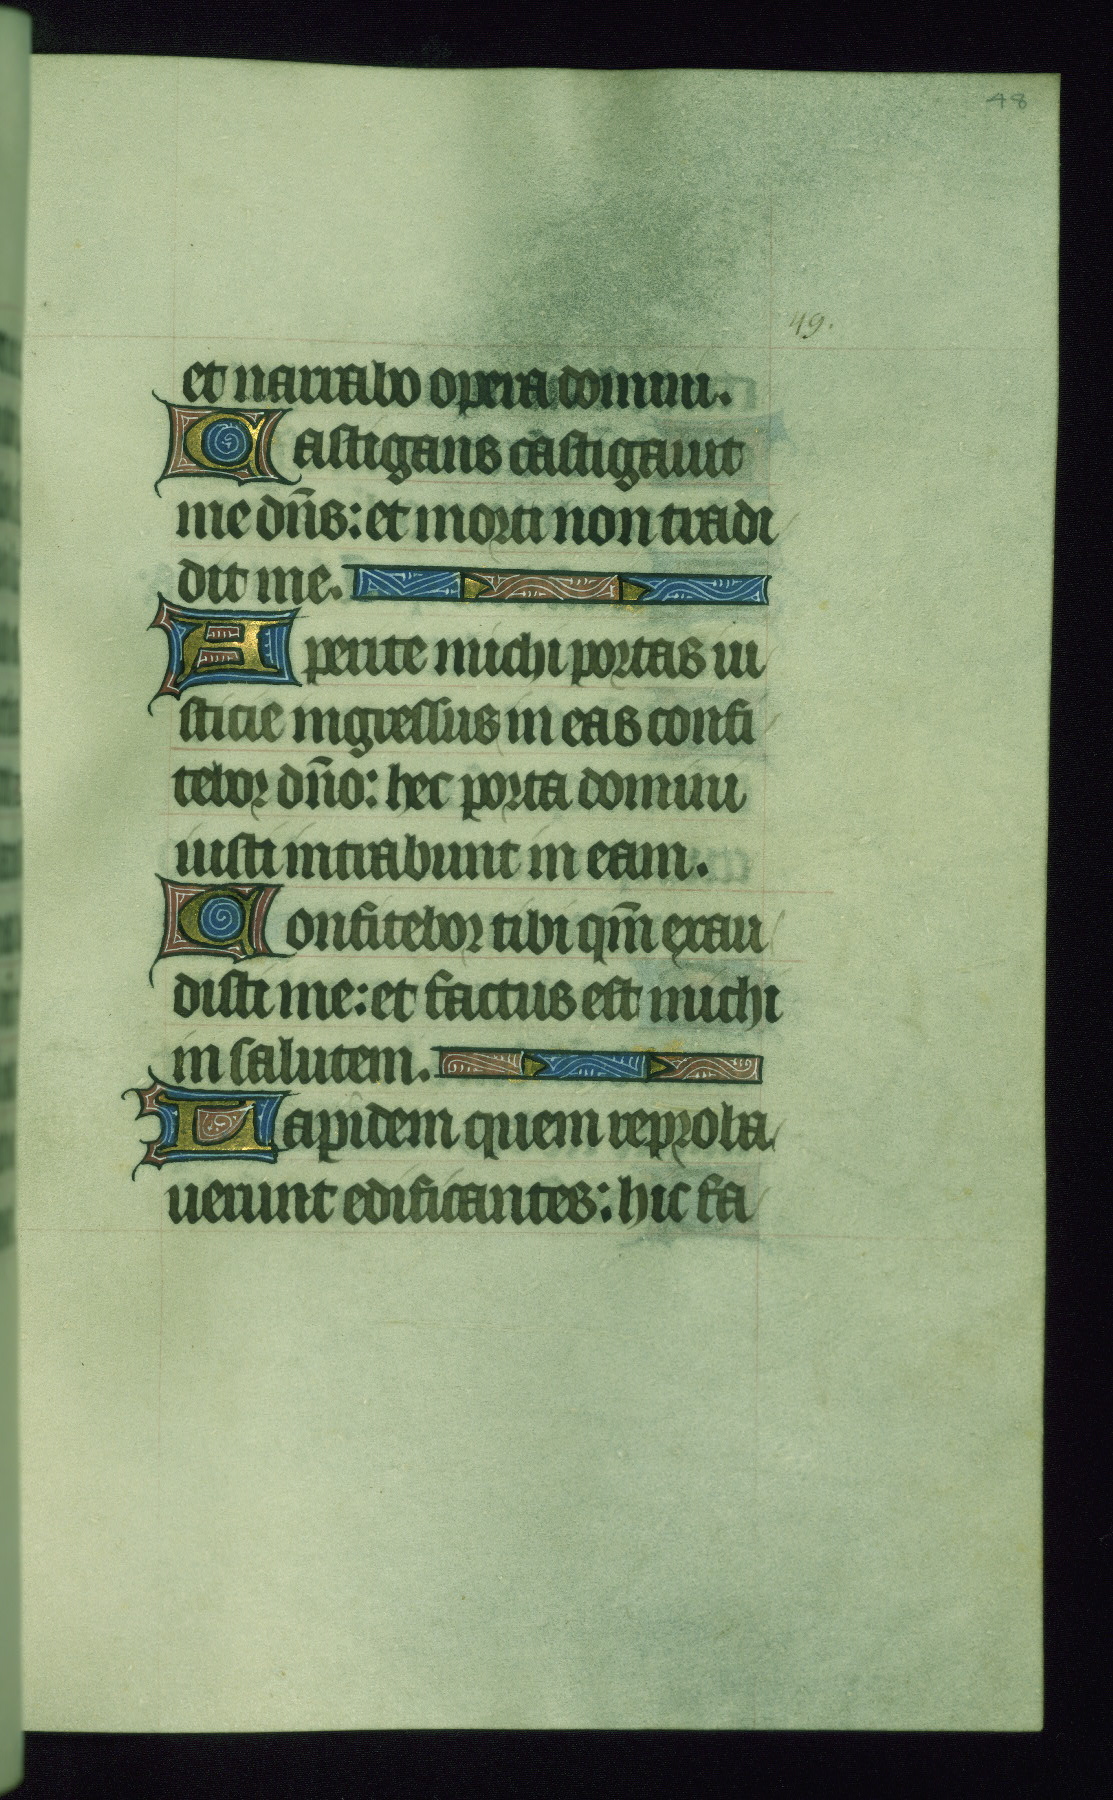 48
49.
et narrabo opera domini.
Castigans castigauit
me dn̄s: et morti non tradi
dit me.
Aperite michi portas iu
sticie ingressus in eas confi
tebor dn̄o: hec porta domini
iusti intrabunt in eam.
Confitebor tibi qm̄ exau
disti me: et factus est michi
in salutem.
Lapidem quem reproba
uerunt edificantes: hic fa